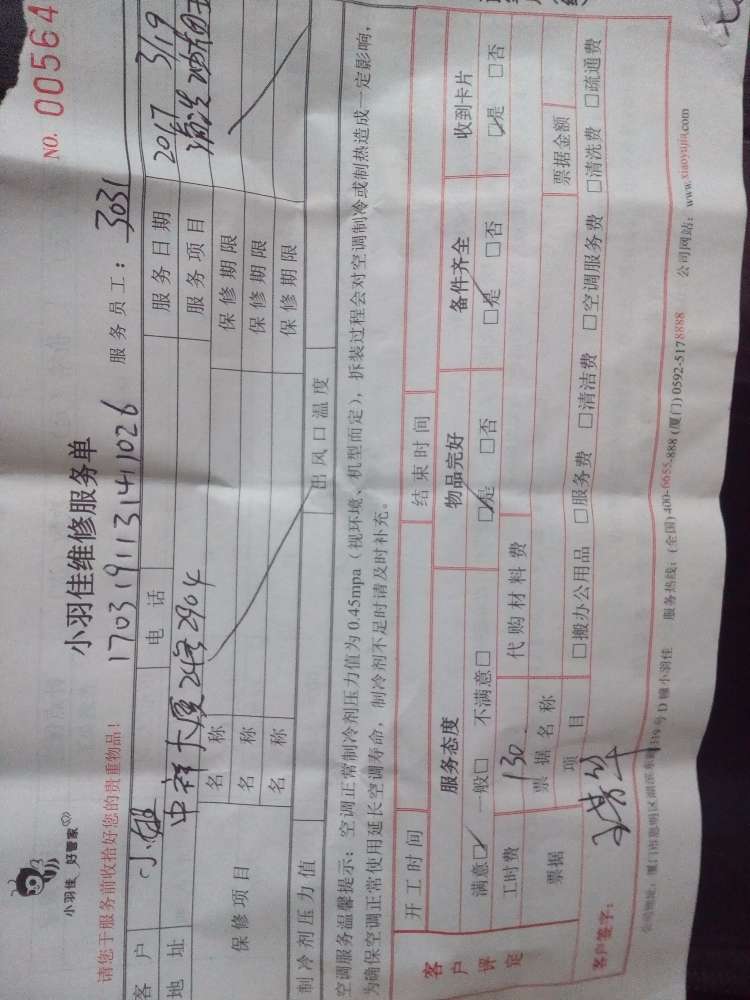 小羽佳 好管家
小羽佳维修服务单
NO. 00564
17031911314 11026
请您于服务前收拾好您的贵重物品!
服务员工: 3031
客户 小姐 电话 服务日期 2017 3/19
地址 中祥大厦24号2904 服务项目 清洗油烟
保修项目 名称 保修期限
名称 保修期限
名称 保修期限
制冷剂压力值 出风口温度
空调服务温馨提示:空调正常制冷剂压力值为0.45mpa(视环境、机型而定),拆装过程会对空调制冷或制热造成一定影响,
为确保空调正常使用延长空调寿命,制冷剂不足时请及时补充。
开工时间 结束时间
客户评定 服务态度 物品完好 备件齐全 收到卡片
满意☑ 一般□ 不满意□ ☑是 □否 ☑是 □否 ☑是 □否
工时费 130. 代购材料费
票据 票据名称 票据金额
项目 □搬办公用品 □服务费 □清洁费 □空调服务费 □清洗费 □疏通费
客户签字:
公司地址:厦门市思明区湖滨东路319号D幢小羽佳 服务热线:(全国)400-6655-888 (厦门)0592-5178888 公司网站:www.xiaoyujia.com